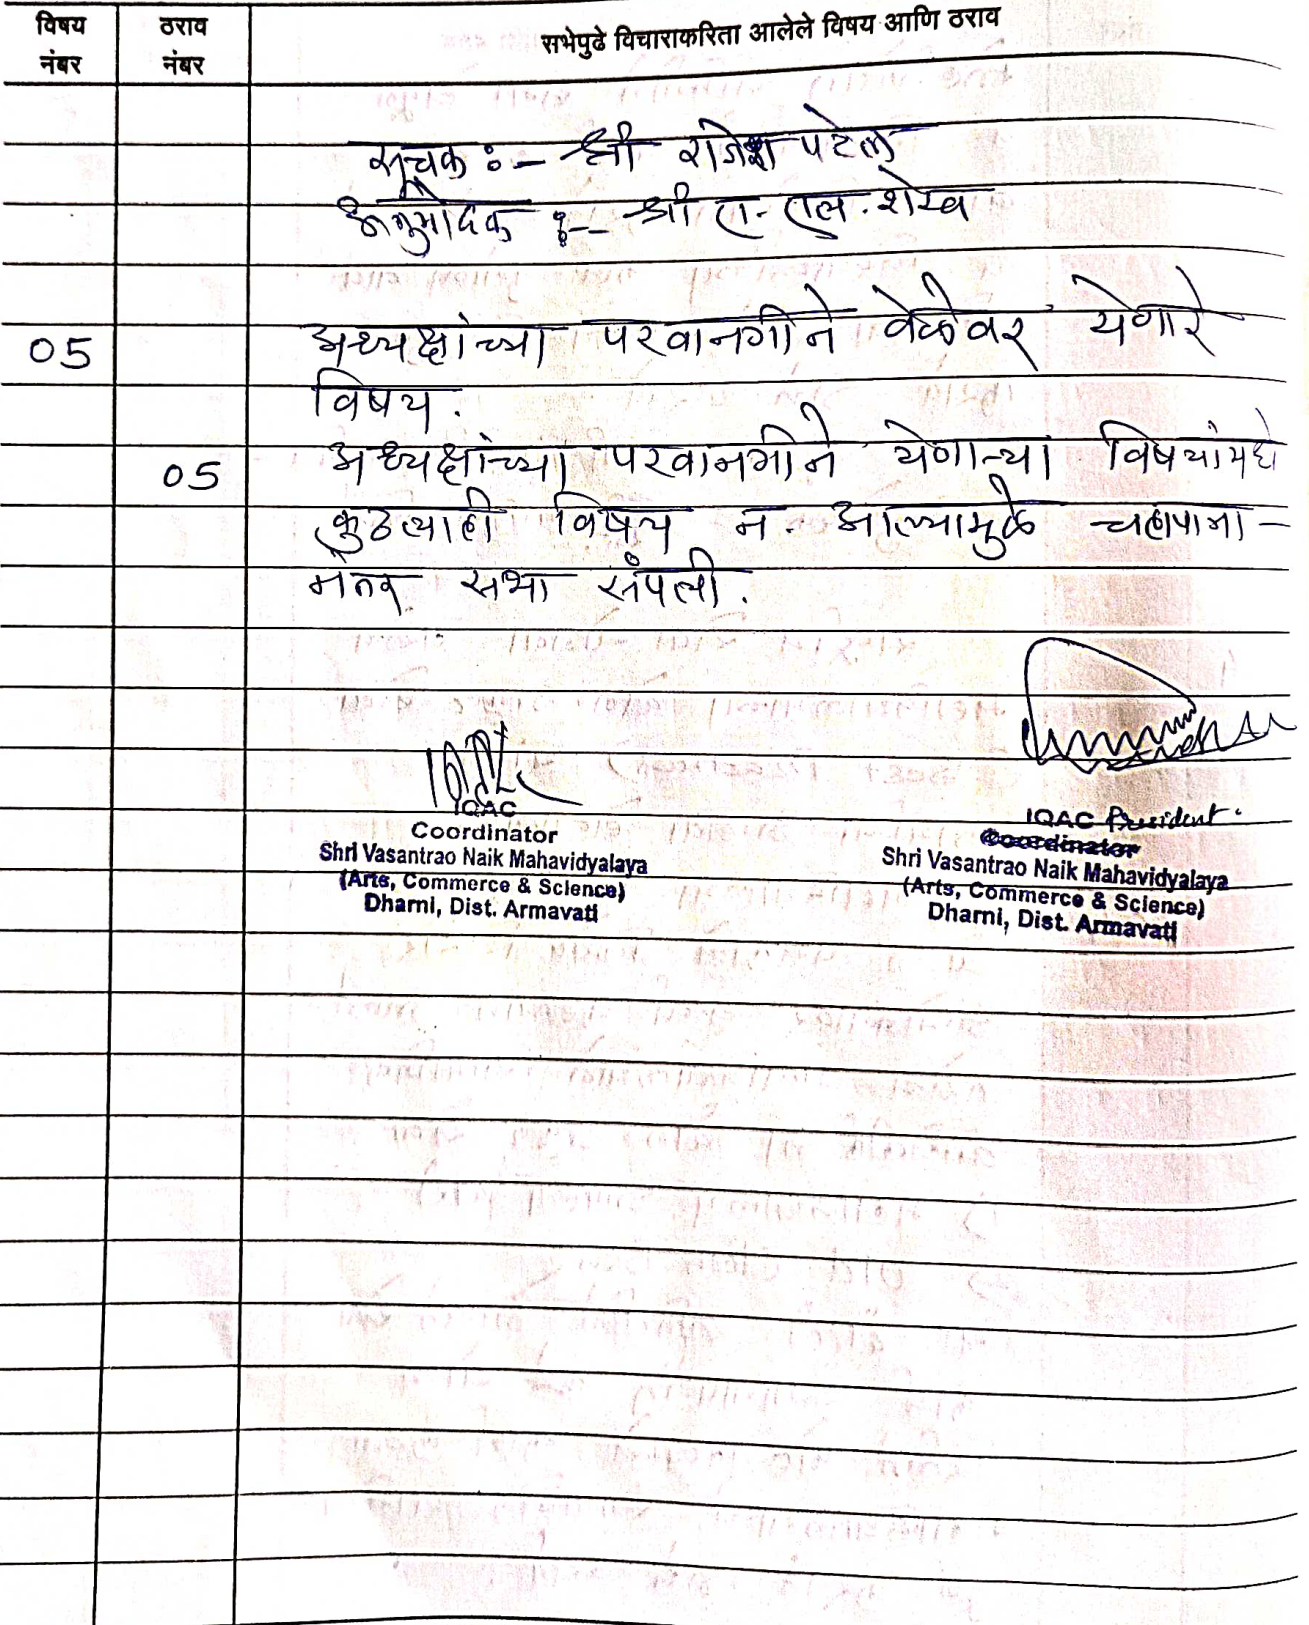 विषय नंबर
ठराव नंबर
सभेपुढे विचाराकरिता आलेले विषय आणि ठराव
सूचक :- श्री राजेश पटेल
अनुमोदक :-- श्री ए. एल. शेख
05 अध्यक्षांच्या परवानगीने वेळेवर येणारे
विषय.
05 अध्यक्षांच्या परवानगीने येणाऱ्या विषयांमधे
कुठल्याही विषय न. आल्यामुळे चहापाना-
नंतर सभा संपली.
IQAC
Coordinator
Shri Vasantrao Naik Mahavidyalaya
(Arts, Commerce & Science)
Dharni, Dist. Armavati
IQAC President.
Coordinator
Shri Vasantrao Naik Mahavidyalaya
(Arts, Commerce & Science)
Dharni, Dist. Armavati